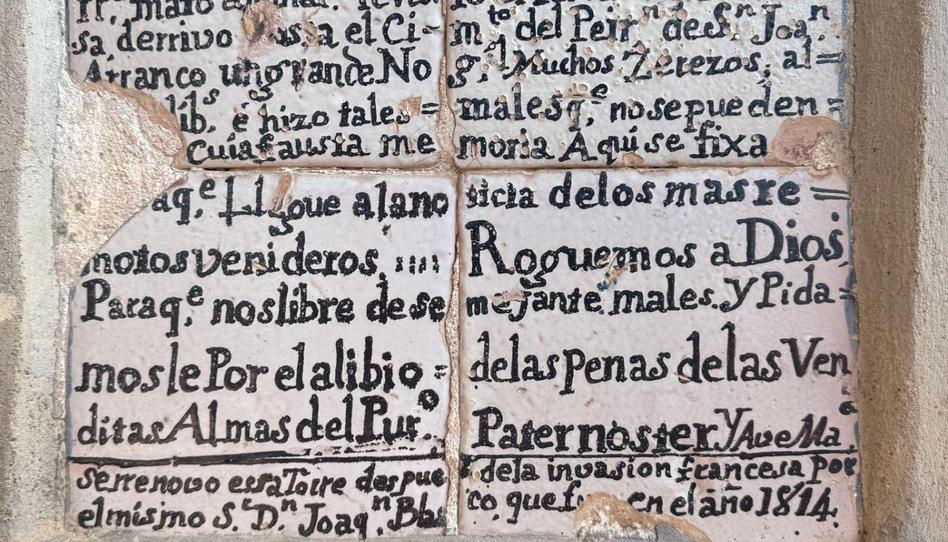 sa, derrivo el Ci- m.to del Peir.n de S.n Joa.n
Arranco un grande No g.l Muchos Zerezos; al=
lib.s e hizo tales = males q.e no se pueden =
Cuia fausta me moria Aqui se fixa
aq.e Llgoue a la no ticia de los mas re =
motos venideros, Roguemos a Dios,
Para q.e nos libre de se mejante males. Y Pida=
mosle Por el alibio = de las penas de las Ven
ditas Almas del Pur.o Pater noster, Y Ave Ma.a
Se rrenovo esta Torre despue de la invasion francesa por
el mismo S.r D.n Joaq.n Blas co que en el año 1814.